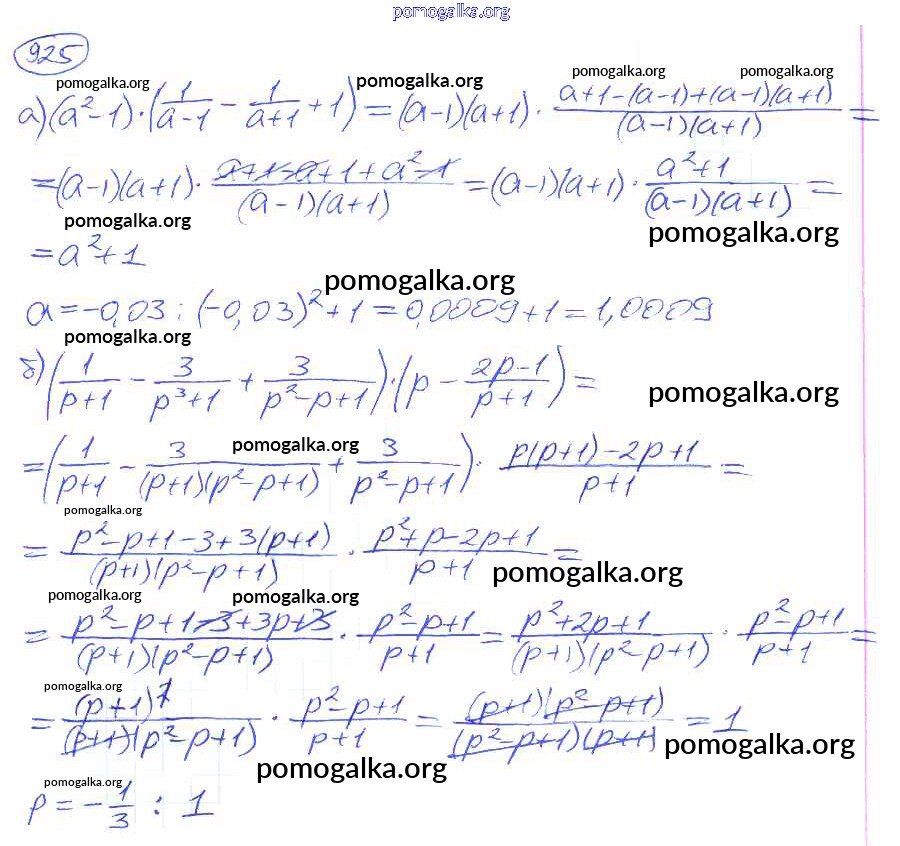 pomogalka.org
925
pomogalka.org pomogalka.org pomogalka.org pomogalka.org
а) (a²-1)·(1/(a-1) - 1/(a+1) + 1) = (a-1)(a+1) · (a+1-(a-1)+(a-1)(a+1))/((a-1)(a+1)) =
= (a-1)(a+1) · (a+1-a+1+a²-1)/((a-1)(a+1)) = (a-1)(a+1) · (a²+1)/((a-1)(a+1)) =
pomogalka.org pomogalka.org
= a²+1
pomogalka.org
a = -0,03 : (-0,03)²+1 = 0,0009+1 = 1,0009
pomogalka.org
б) (1/(p+1) - 3/(p³+1) + 3/(p²-p+1))·(p - (2p-1)/(p+1)) =
pomogalka.org
pomogalka.org
= (1/(p+1) - 3/((p+1)(p²-p+1)) + 3/(p²-p+1)) · (p(p+1)-2p+1)/(p+1) =
pomogalka.org
= (p²-p+1-3+3(p+1))/((p+1)(p²-p+1)) · (p²+p-2p+1)/(p+1) =
pomogalka.org
pomogalka.org pomogalka.org
= (p²-p+1-3+3p+3)/((p+1)(p²-p+1)) · (p²-p+1)/(p+1) = (p²+2p+1)/((p+1)(p²-p+1)) · (p²-p+1)/(p+1) =
pomogalka.org
= (p+1)²/((p+1)(p²-p+1)) · (p²-p+1)/(p+1) = ((p+1)(p²-p+1))/((p²-p+1)(p+1)) = 1
pomogalka.org
pomogalka.org
pomogalka.org
p = -1/3 : 1